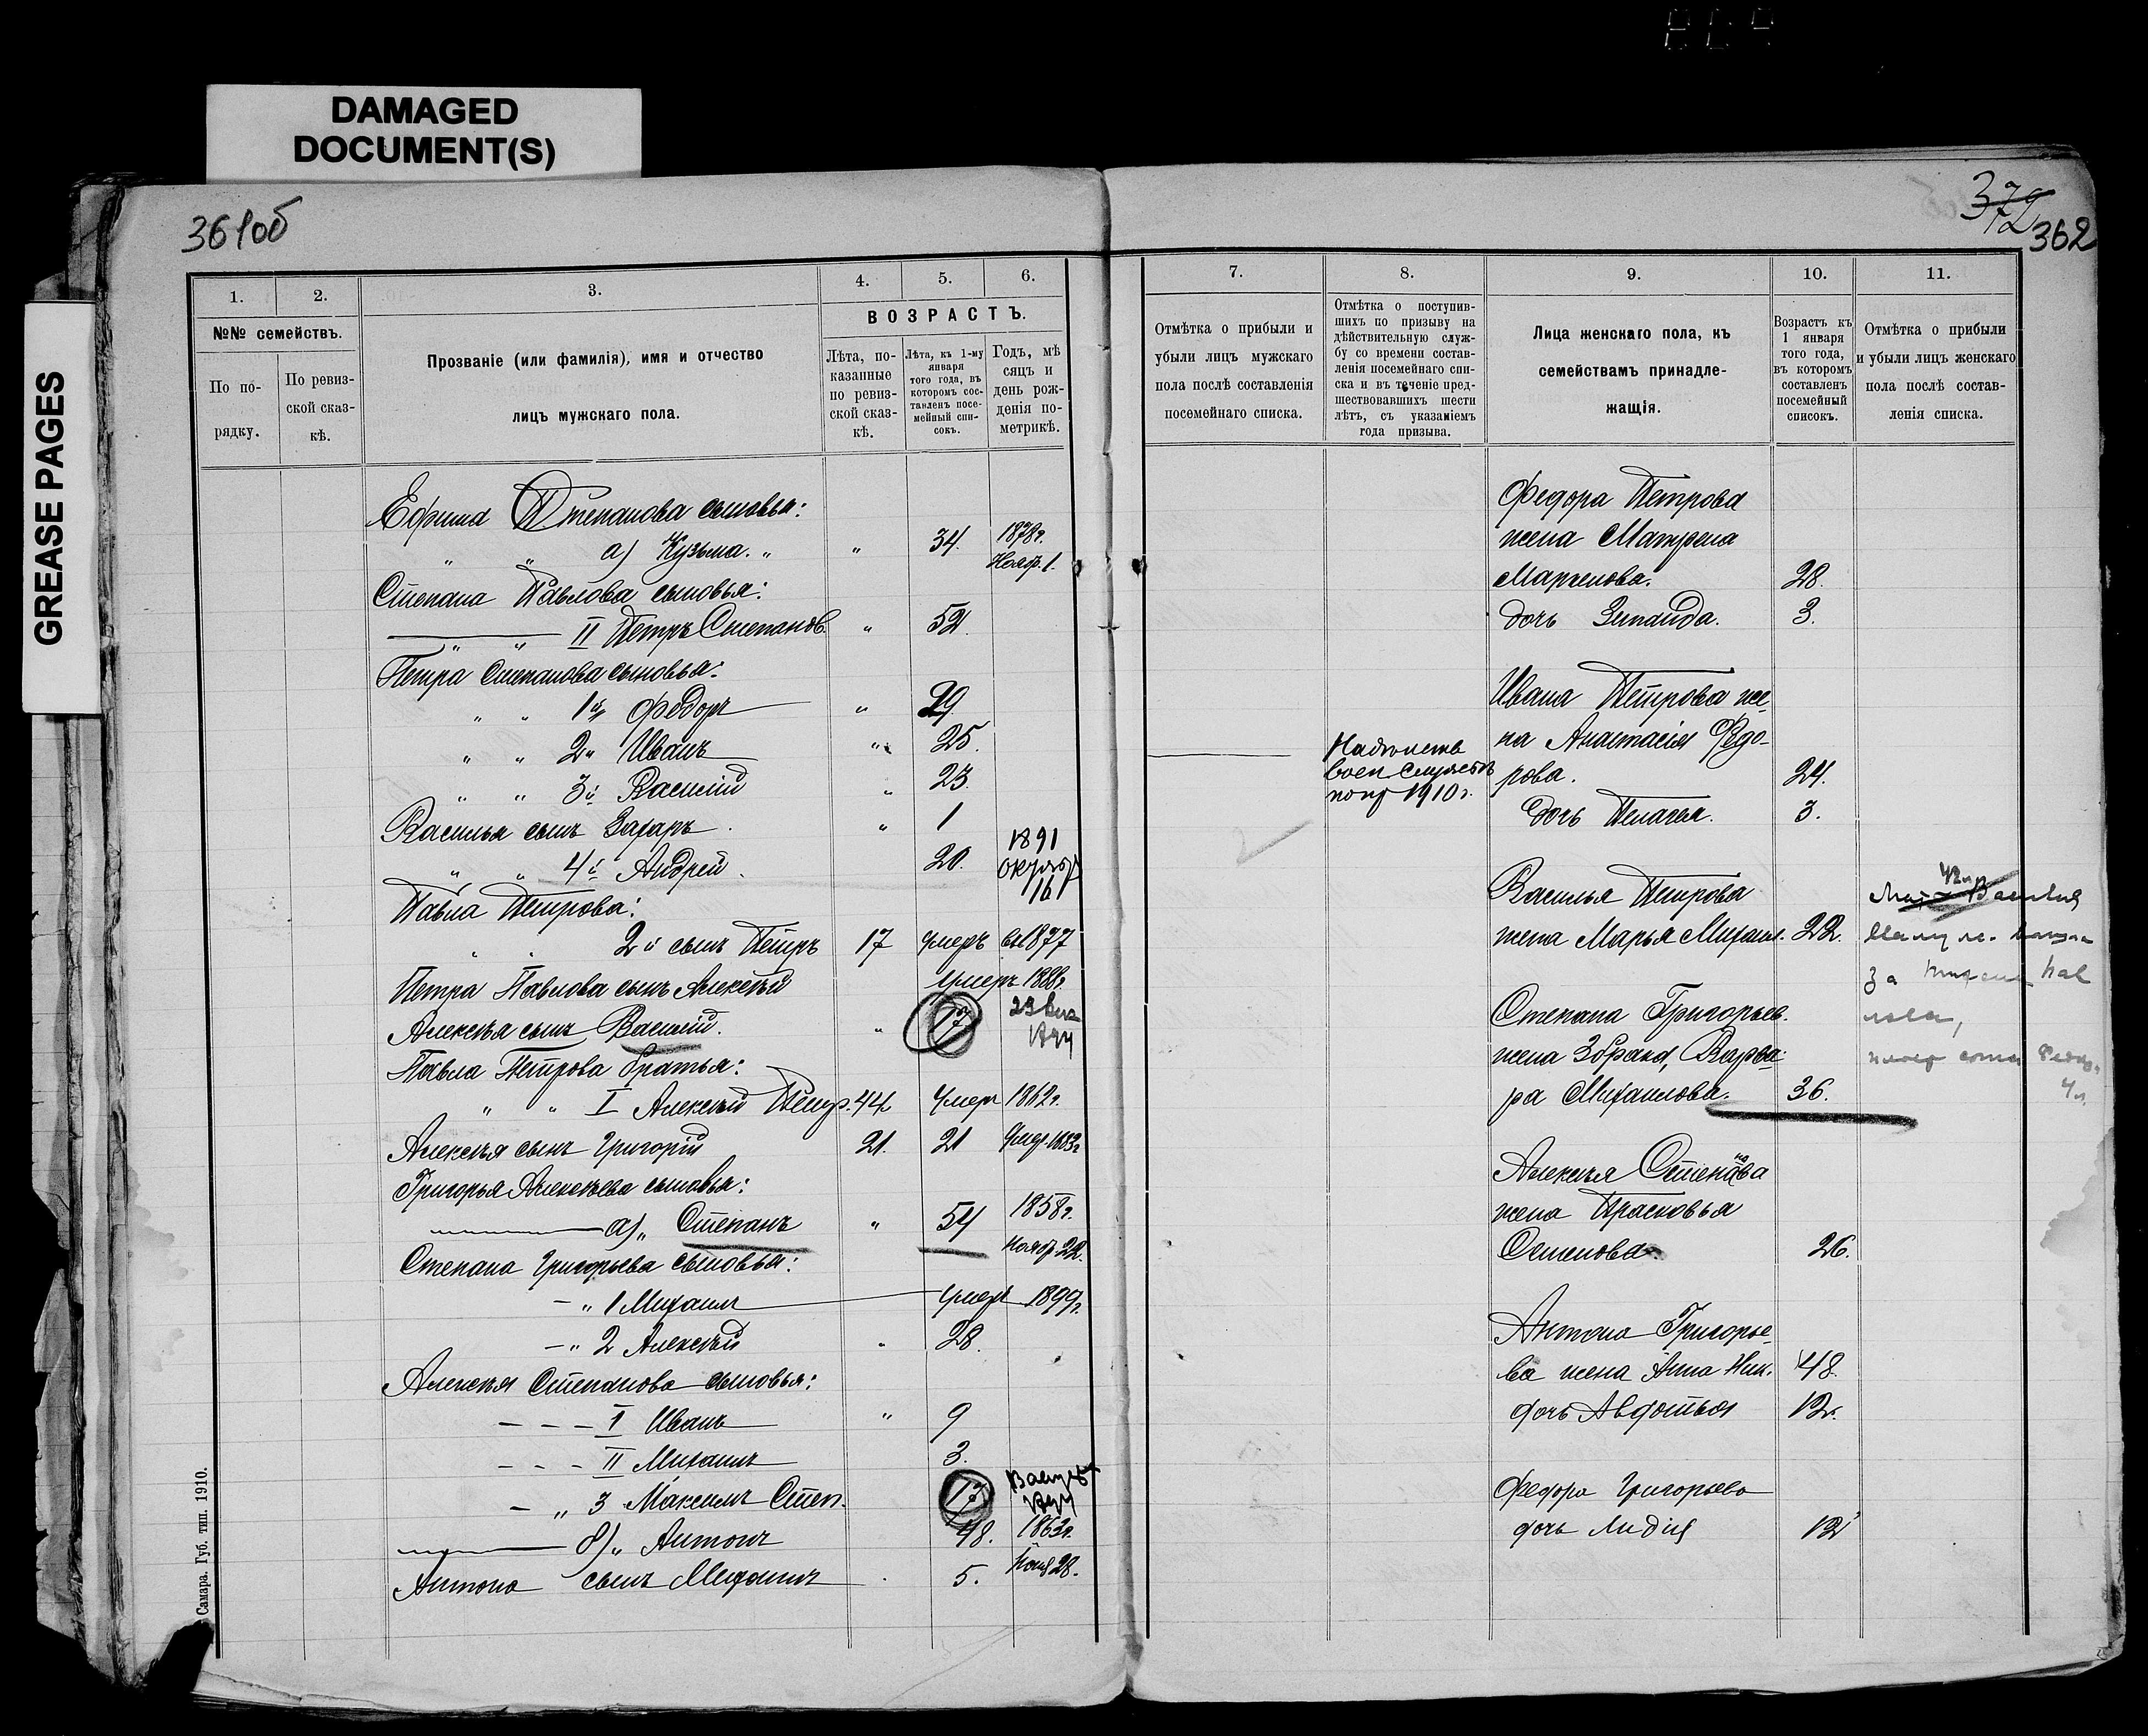 DAMAGED
DOCUMENT(S)
GREASE PAGES
361об
1.
2.
3.
4.
5.
6.
№№ семействъ.
ВОЗРАСТЪ.
По по-
рядку.
По ревиз-
ской сказ-
кѣ.
Прозваніе (или фамилія), имя и отчество
лицъ мужскаго пола.
Лѣта, по-
казанные
по ревиз-
ской сказ-
кѣ.
Лѣта, къ 1-му
января
того года, въ
которомъ сос-
тавленъ посе-
мейный спи-
сокъ.
Годъ, мѣ
сяцъ и
день рож-
денія по-
метрикѣ.
Ефима Степанова сыновья:
" " а) Кузьма. " " 34. 1878г.
Нояб. 1.
Степана Павлова сыновья:
" " II Петръ Степанов. " 52.
Петра Степанова сыновья:
" " 1й Федоръ " 29
" " 2й Иванъ " 25.
" " 3й Василій " 23.
Василья сынъ Захаръ " 1
" " 4й Андрей 20. 1891
октяб
16
Павла Петрова:
" " 2й сынъ Петръ 17 умеръ въ 1877
Петра Павлова сынъ Алексѣй умеръ 1888г.
Алексѣя сынъ Василій. " 17 23
Павла Петрова братья:
" " I Алексѣй Петр. 44 умеръ 1862г.
Алексѣя сынъ Григорій 21. 21 умер. 1883г
Григорья Алексѣева сыновья:
а) " Степанъ " 54 1858г.
нояб. 22.
Степана Григорьева сыновья:
" 1 Михаилъ умеръ 1899г.
" 2 Алексѣй " 28.
Алексѣя Степанова сыновья:
I Иванъ " 9
II Михаилъ 3.
" 3 Максимъ Степ. 17
б) " Антонъ 48. 1863г.
28.
Антона сынъ Михаилъ 5.
Самара. Губ. тип. 1910.
372
362
7.
8.
9.
10.
11.
Отмѣтка о прибыли и
убыли лицъ мужскаго
пола послѣ составленія
посемейнаго списка.
Отмѣтка о поступив-
шихъ по призыву на
дѣйствительную служ-
бу со времени состав-
ленія посемейнаго спи-
ска и въ теченіе пред-
шествовавшихъ шести
лѣтъ, съ указаніемъ
года призыва.
Лица женскаго пола, къ
семействамъ принадле-
жащія.
Возрастъ къ
1 января
того года,
въ которомъ
составленъ
посемейный
списокъ.
Отмѣтка о прибыли
и убыли лицъ женскаго
пола послѣ состав-
ленія списка.
Федора Петрова
жена Матрена
Маркелова. 28.
дочь Зинаида. 3.
Ивана Петрова же-
на Анастасія Федо-
рова. 24.
дочь Пелагея. 3.
1910г.
Василья Петрова
жена Марья Михаил. 22.
Степана Григорьев.
жена 2 брака, Варва-
ра Михаилова. 36.
Василія
за
Алексѣя Степанова
жена Прасковья
Семенова. 26.
Антона Григорье-
ва жена Анна Ник. 48.
дочь Авдотья 12.
Федора Григорьева
дочь Лидія 12